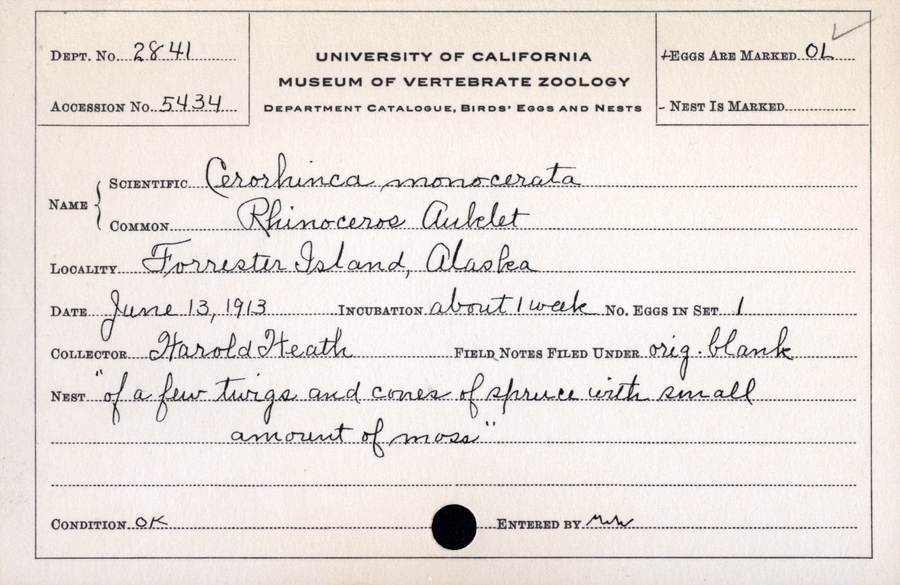 Dept. No. 2841
UNIVERSITY OF CALIFORNIA
MUSEUM OF VERTEBRATE ZOOLOGY
Department Catalogue, Birds' Eggs and Nests
Accession No. 5434
+Eggs Are Marked OL
- Nest Is Marked
Name { Scientific Cerorhinca monocerata
Common Rhinoceros Auklet
Locality Forrester Island, Alaska
Date June 13, 1913 Incubation about 1 week No. Eggs in Set 1
Collector Harold Heath Field Notes Filed Under orig. blank
Nest "of a few twigs and cones of spruce with small
amount of moss"
Condition OK Entered by